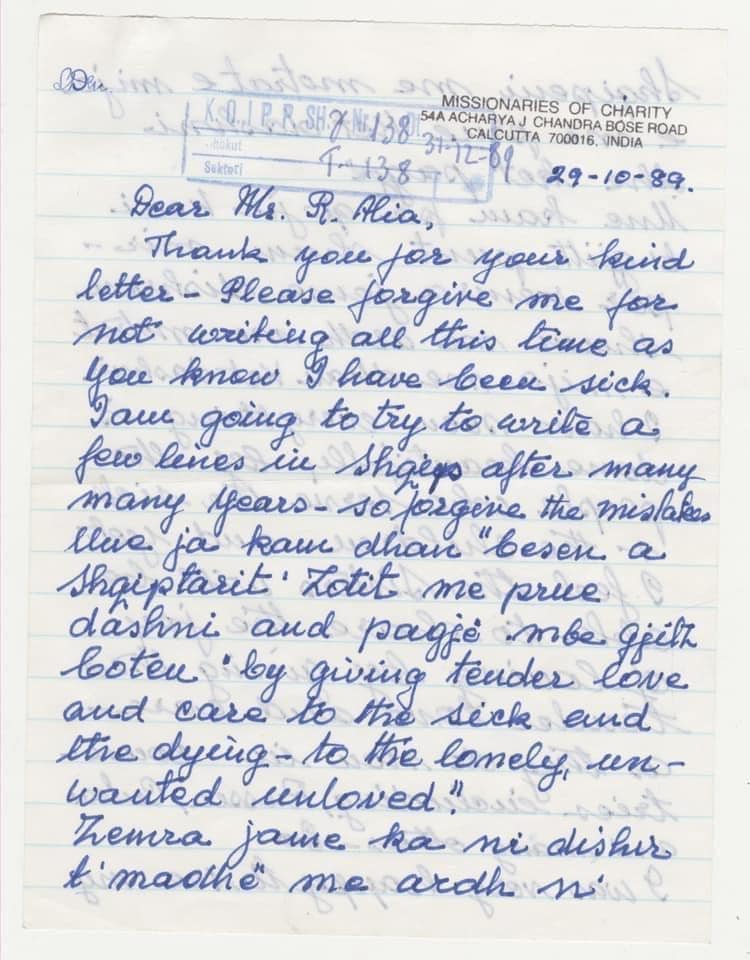 MISSIONARIES OF CHARITY
54A ACHARYA J CHANDRA BOSE ROAD
CALCUTTA 700016, INDIA
K.Q.I P.R.SH 138
31-12-89
Sektori T- 138
29-10-89.
Dear Mr. R. Alia,
Thank you for your kind
letter - Please forgive me for
not writing all this time as
you know I have been sick.
I am going to try to write a
few lines in Shqip after many
many years - so forgive the mistakes
Une ja kam dhan "besen a
Shqiptarit' Zotit me prue
dashni and pagjë mbe gjith
boten 'by giving tender love
and care to the sick and
the dying - to the lonely, un-
wanted unloved".
Zemra jame ka ni dishir
t'madhë me ardh ni